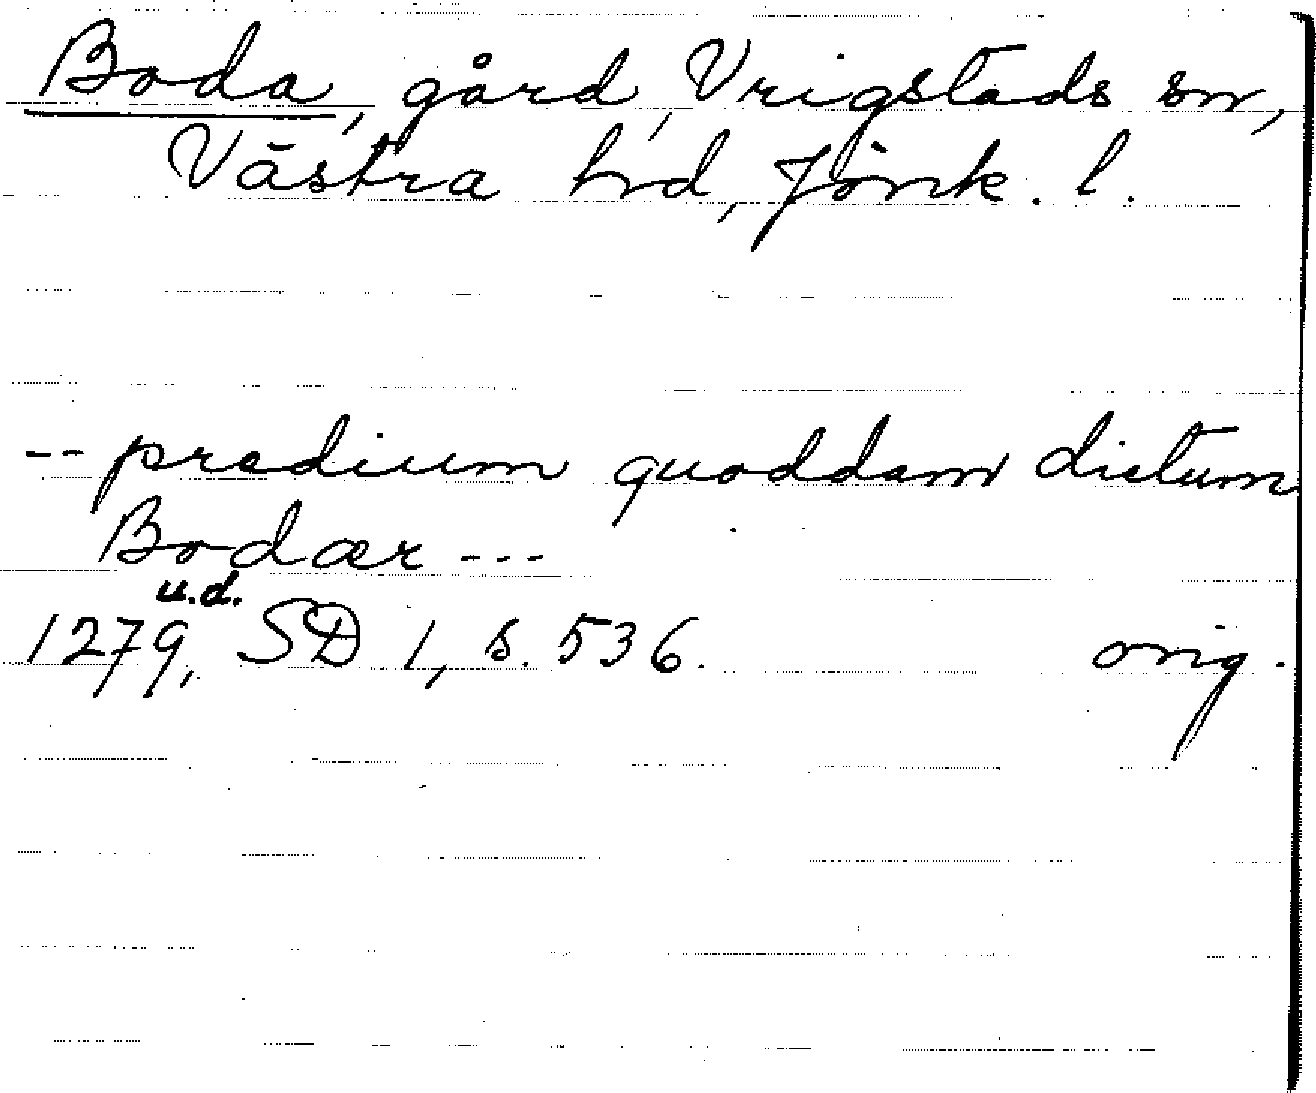 Boda, gård, Vrigstads sn,
Västra hd, Jönk. l.
-- predium quoddam dictum
Bodær ---
u.d.
1279, SD 1, s. 536. orig.